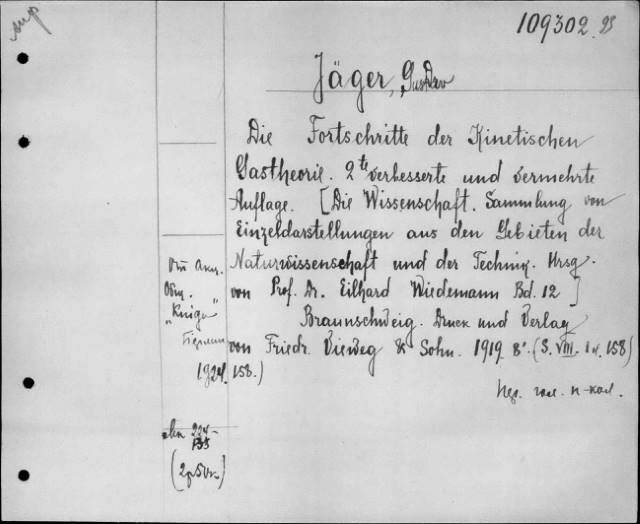 109302
Jäger, Gustav
Die Fortschritte der Kinetischen
Gastheorie. 2te verbesserte und vermehrte
Auflage. [Die Wissenschaft. Sammlung von
Einzeldarstellungen aus den Gebieten der
Naturwissenschaft und der Techniq. Hrsg.
von Prof. Dr. Eilhard Wiedemann Bd. 12]
Braunschweig. Druck und Verlag
von Friedr. Vieweg & Sohn. 1919. 8°. (S. VIII. 1 u. 158)
158.)
"Книга"
1924.